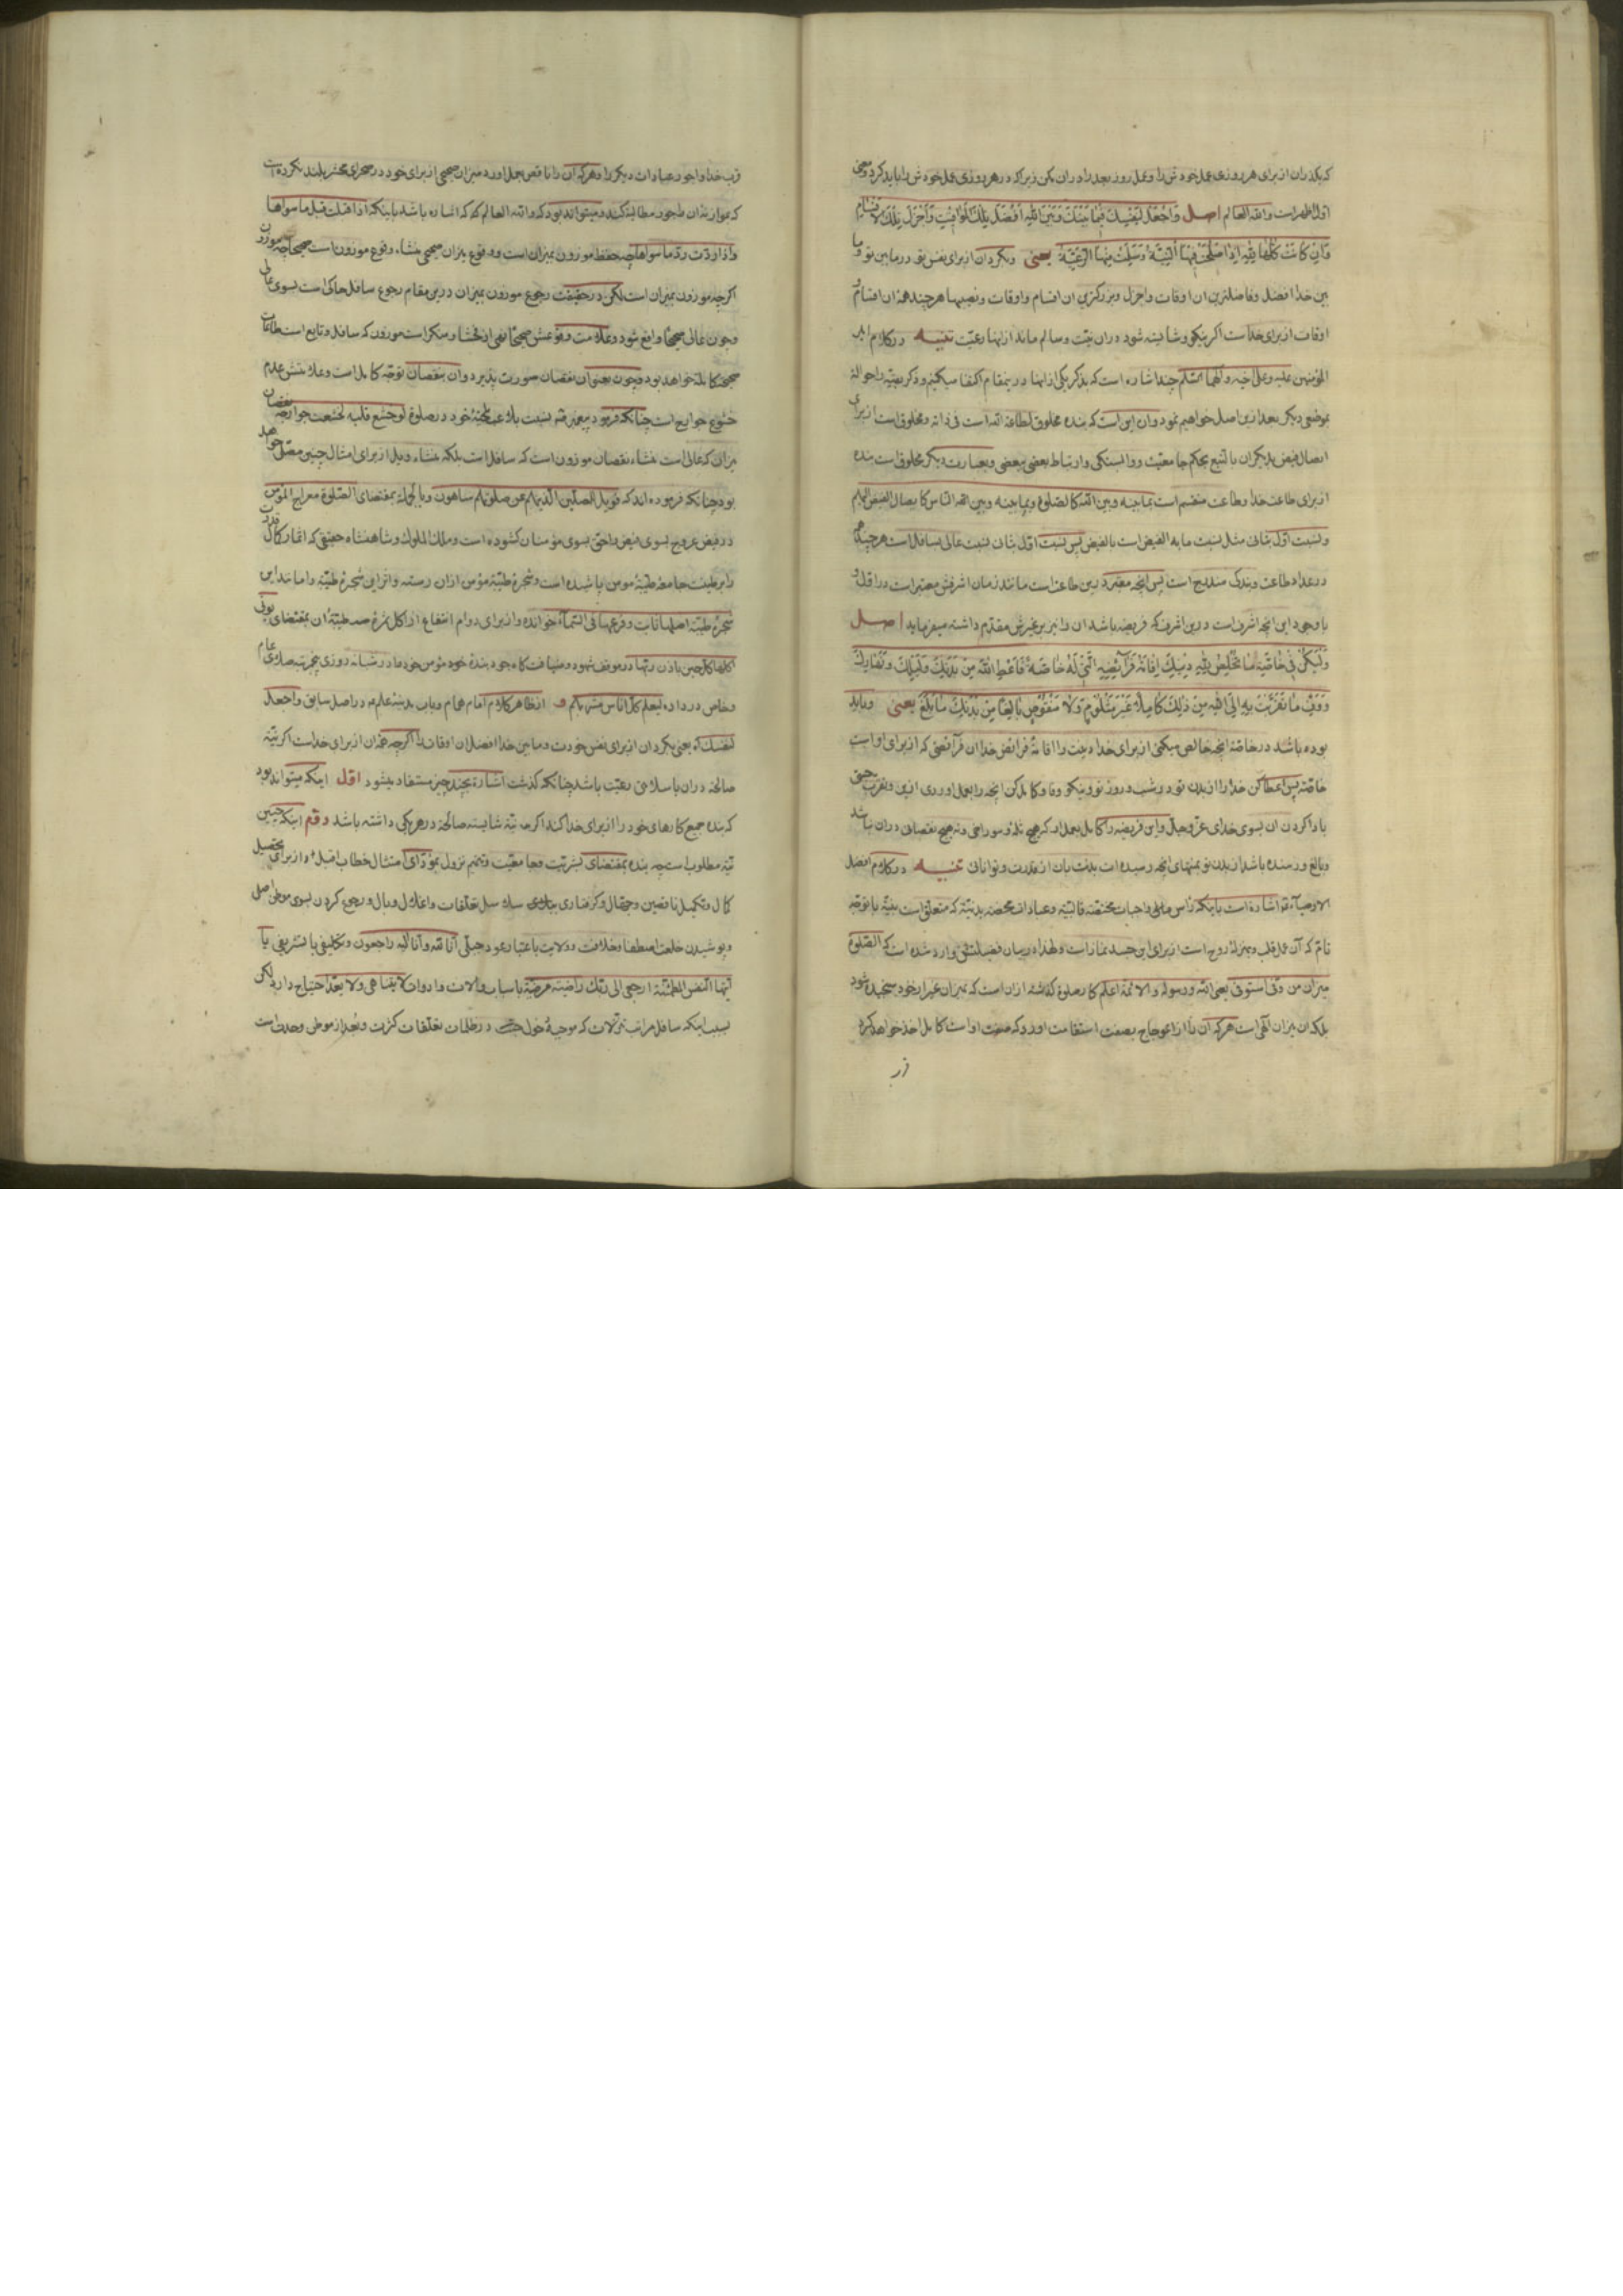 که بکذران از برای هر روزی عمل خودش را و عمل روز بعد را دران مکن زیرا که در هر روزی عمل خودش را باید کرد و معنی
اول اظهر است والله العالم اصل وَاجْعَلْ لِنَفْسِكَ فِيمَا بَيْنَكَ وَبَيْنَ اللهِ اَفْضَلَ تِلْكَ الْمَوَاقِيتِ وَاَجْزَلَ تِلْكَ الْاَقْسَامِ
وَاِنْ كَانَتْ كُلُّهَا لِلّٰهِ اِذَا صَلُحَتْ فِيهَا النِّيَّةُ وَسَلِمَتْ مِنْهَا الرَّعِيَّةُ یعنی وبکردان از برای نفس تو در مابین تو و ما
بین خدا افضل وفاضلترین ان اوقات واجزل وبزرکترین ان اقسام واوقات ونصیبها هر چند همهٔ ان اقسام و
اوقات از برای خداست اکر نیکو وشایسته شود دران نیت وسالم ماند از اینها رعیت تنبیه درکلام امیر
المؤمنین علیه وعلی اخیه والهما السّلم چند اشاره است که بذکر یکی از اینها درینمقام اکتفا میکنیم وذکر بقیّه را حواله
بموضعی دیکر بعد ازین اصل خواهیم نمود وان این است که بنده مخلوق لطاعة الله است فی ذاته ومخلوق است از برای
ایصال فیض بدیکران بالتبع بحکم جامعیّت ووابستکی وارتباط بعضی ببعضی وبعبارت دیکر مخلوق است بنده
از برای طاعت خدا وطاعت منقسم است بما بینه وبین الله کالصّلوة وبما بینه وبین النّاس کایصال الفیض الیهم
ونسبت اوّل بثانی مثل نسبت ما به الفیض است بالفیض پس نسبت اوّل بثانی نسبت عالی بسافل است هرچند همه
درعداد طاعت وبندکی مندرج است پس انچه معتبر درین طاعت است مانند زمان اشرفش معتبر است در اوّل و
با وجود این انچه اشرف است درین اشرف که فریضه باشد ان را نیز بر غیرش مقدّم داشته میفرماید اصل
وَلْيَكُنْ فِي خَاصَّةِ مَا تُخْلِصُ لِلّٰهِ بِهِ دِينَكَ اِقَامَةُ فَرَائِضِهِ الَّتِي هِيَ لَهُ خَاصَّةً فَاَعْطِ اللهَ مِنْ بَدَنِكَ فِي لَيْلِكَ وَنَهَارِكَ
وَوَفِّ مَا تَقَرَّبْتَ بِهِ اِلَى اللهِ مِنْ ذٰلِكَ كَامِلًا غَيْرَ مَثْلُومٍ وَلَا مَنْقُوصٍ بَالِغًا مِنْ بَدَنِكَ مَا بَلَغَ یعنی وباید
بوده باشد درخاصّهٔ انچه خالص میکنی از برای خدا دینت را اقامهٔ فرائض خدا ان فرائضی که از برای او است
خاصّة پس اعطا کن خدا را از بدن تو در شب وروز تو ونیکو وفا وکامل کن انچه را بعمل اوردی ازین وتقرب جستی
با دا کردن ان بسوی خدای عزّ وجلّ واین فریضه را کامل بعمل ار که هیچ ثلمه وسوراخی ونه هیچ نقصان دران نباشد
وبالغ ورسنده باشد از بدن تو بمنتهای انچه رسیده است بدنت بان از قدرت وتوانائی تنبیه درکلام افضل
الاوصیآء اشاره است باینکه راس واجبات مختصّه قالبیّه وعبادات محضه بدنیّه که متعلق است بنیّه با توجّه
تامّ که آن عمل قلب وبمنزلهٔ روح است از برای این جسد نماز است ولهذا در بیان فضیلتش وارد شده است که الصّلوة
میزان من وفی استوفی یعنی الله ورسوله والائمّة اعلم که صلوة کذشته ازان است که بمیزان غیر از خود سنجیده شود
بلکه ان میزان الهی است هر که آن را از اعوجاج بصفت استقامت اورد که صفت او است کامل اخذ خواهد کرد
قرب خدا واجور عبادات دیکر را وهر که ان را ناقص بعمل اورد میزان صحیحی از برای خود در صحرای محشر بلند نکرده است
که بموازنهٔ ان اجور مطالبه کند ومیتواند بود که والله العالم که که اشاره باشد باینکه اذا قبلت قبل ما سواها
واذا ردّت ردّ ما سواها چه حفظ موزون بمیزان است ووقوع میزان صحیحی منشاء وقوع موزون است صحیحاً چه موزون
اکرچه موزون بمیزان است لکن درحقیقت رجوع موزون بمیزان درین مقام رجوع سافل حاکی است بسوی عالی
وچون عالی صحیحاً واقع شود وعلامت وقوعش صحیحاً نهی از فحشا ومنکر است موزون که سافل وتابع است طاعات
صحیحهٔ کامله خواهد بود وچون بعنوان نقصان صورت پذیرد وان بنقصان توجّه کامل است وعلامتش عدم
خشوع جوارح است چنانکه فرمود پیغمبر نسبت بلاعب بلحیهٔ خود در صلوة لو خشع قلبه لخشعت جوارحه نقصان
میزان که عالی است منشاء نقصان موزون است که سافل است بلکه منشاء ویل از برای امثال چنین مصلّی خواهد
بود چنانکه فرموده اند که فویل للمصلّین الّذینهم عن صلوتهم ساهون وبالجمله بمقتضای الصّلوة معراج المؤمن
درفیض عروج بسوی فیض راحتی بسوی مؤمنان کشوده است وملک الملوک وشاهنشاه حقیقی که اثمار کمال قدرت
را برطینت جامعهٔ طیّبهٔ مومن پاشیده است وشجرهٔ طیّبهٔ مؤمن ازان رسته واثر این شجرهٔ طیّبه را مانند این
شجرهٔ طیّبه اصلها ثابت وفرعها فی السّماء خوانده واز برای دوام انتفاع از اکل ثمرهٔ طیّبهٔ ان بمقتضای توتی
اکلها کلّ حین باذن ربّها درموقف شهود وضیافت کاه جود بندهٔ خود مؤمن خود را در شبانه روزی پنج مرتبه صلای عام
وخاص در داده لیعلم کلّ اناس مشربهم و ازظاهر کلام امام همام وباب مدینهٔ علم در اصل سابق واجعل
لنفسک آه یعنی بکردان از برای نفس خودت ومابین خدا افضل ان اوقات را اکرچه همهٔ ان از برای خداست اکر نیّه
صالحه دران با سلامتی رعیّت باشد چنانکه کذشت اشاره بچند چیز مستفاد میشود اوّل اینکه میتواند بود
که بنده جمیع کارهای خود را از برای خدا کند اکر نیّهٔ شایستهٔ صالحه درهر یکی داشته باشد دوّم اینکه چنین
نیّه مطلوب است چه بنده بمقتضای بشریّت وجامعیّت وتتمیم نزول بمؤدّای امتثال خطاب اقبل از برای تحصیل
کمال وتکمیل ناقصین وجهّال وکرفتاری سلک سبل تعلّقات واغلال وبال ورجوع کردن بسوی موطن اصلی
وپوشیدن خلعت اصطفا وخلافت وولایت باعتبار عود جبلّی انّا لله وانّا الیه راجعون وتکلیفی یا تشریفی یا
ایّتها النّفس المطمئنّة ارجعی الی ربّک راضیة مرضیّة باسباب والات وادوات لا یتناهی ولا یعدّ احتیاج دارد لکن
بسبب اینکه سافل مراتب تنزّلات که موجبهٔ دخول در ظلمات تعلّقات کثرت وبُعد از موطن وحدت است